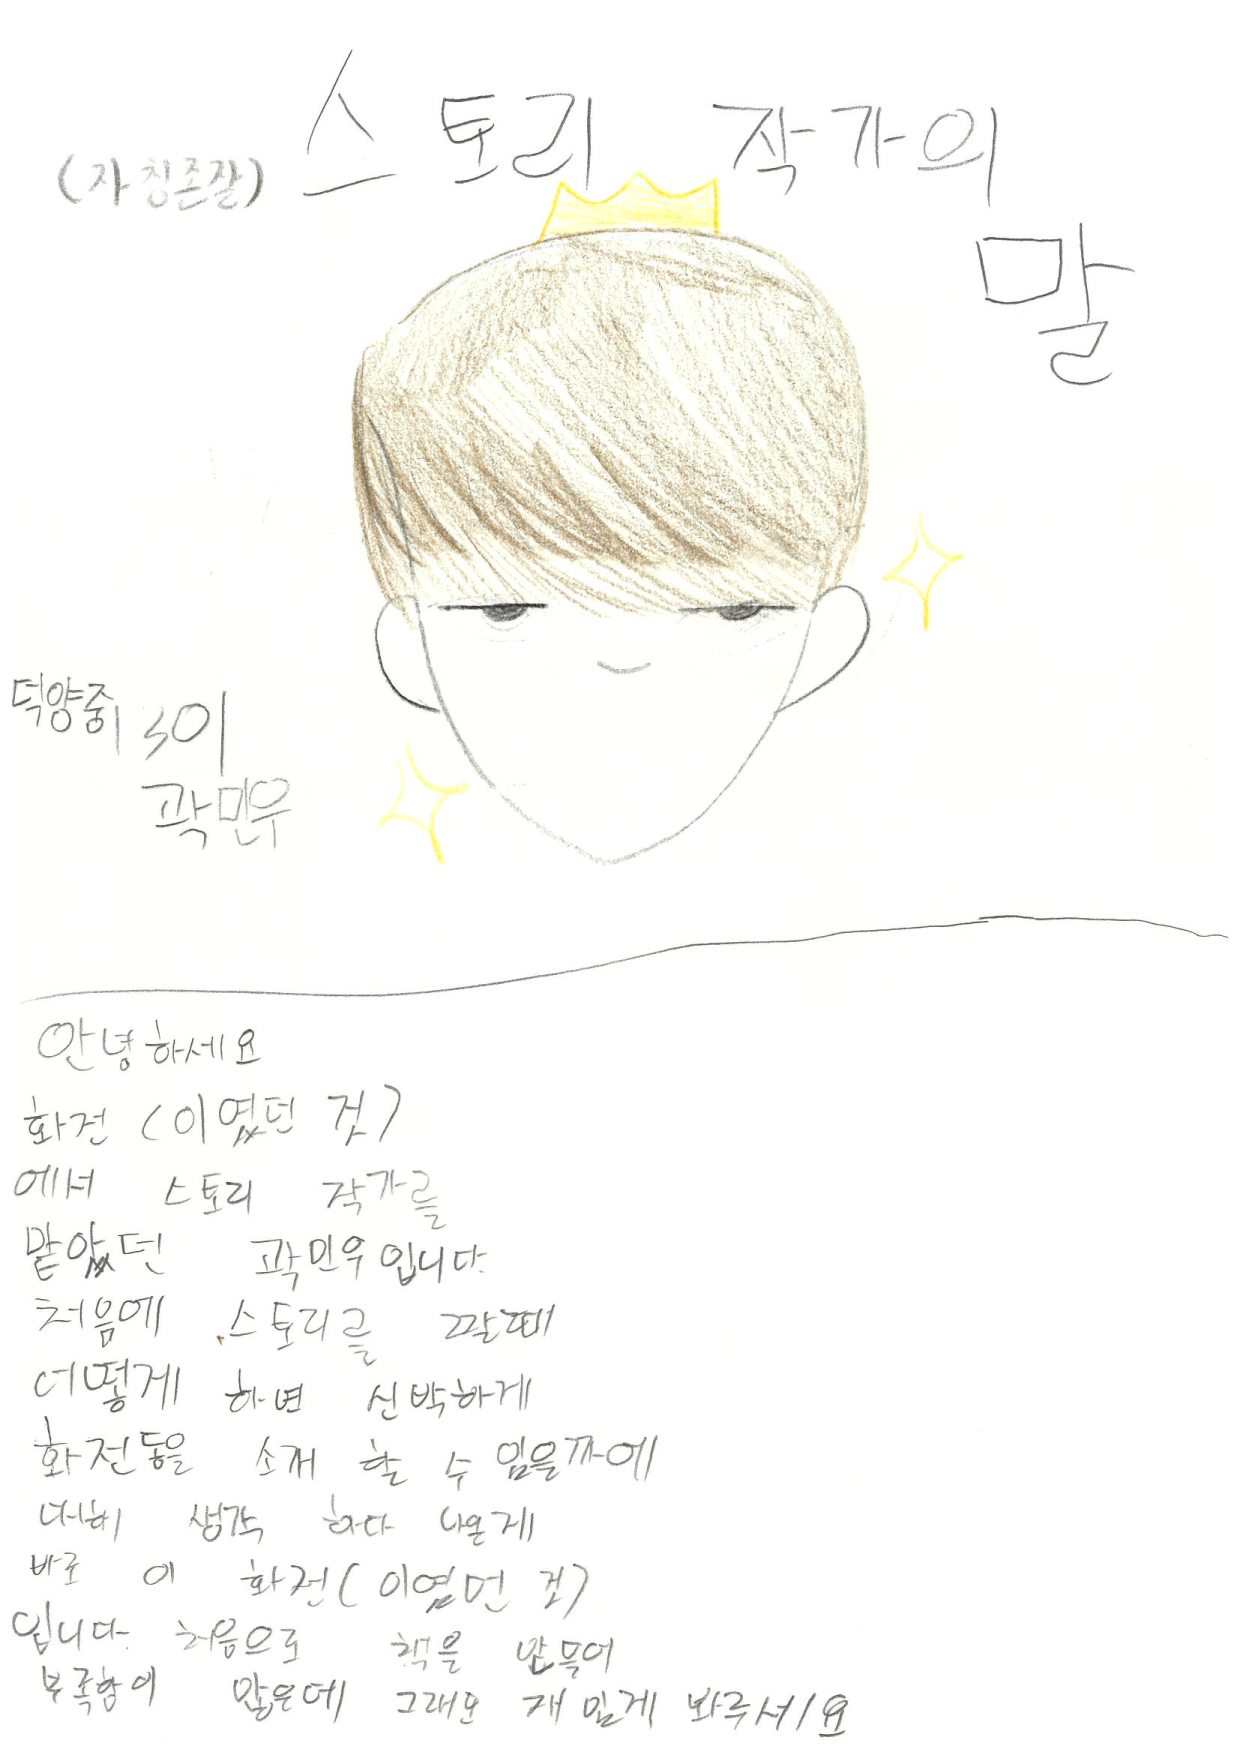 스토리 작가의
(자칭존잘)
말
덕양중
3이
곽민우
안녕하세요
화전 (이였던 것)
에서 스토리 작가를
맡았던 곽민우입니다.
처음에 스토리를 짤때
어떻게 하면 신박하게
화전동을 소개 할 수 있을까에
대해 생각 하다 나온게
바로 이 화전(이였던 것)
입니다. 처음으로 책을 만들어
부족함이 많은데 그래도 재밌게 봐주세요